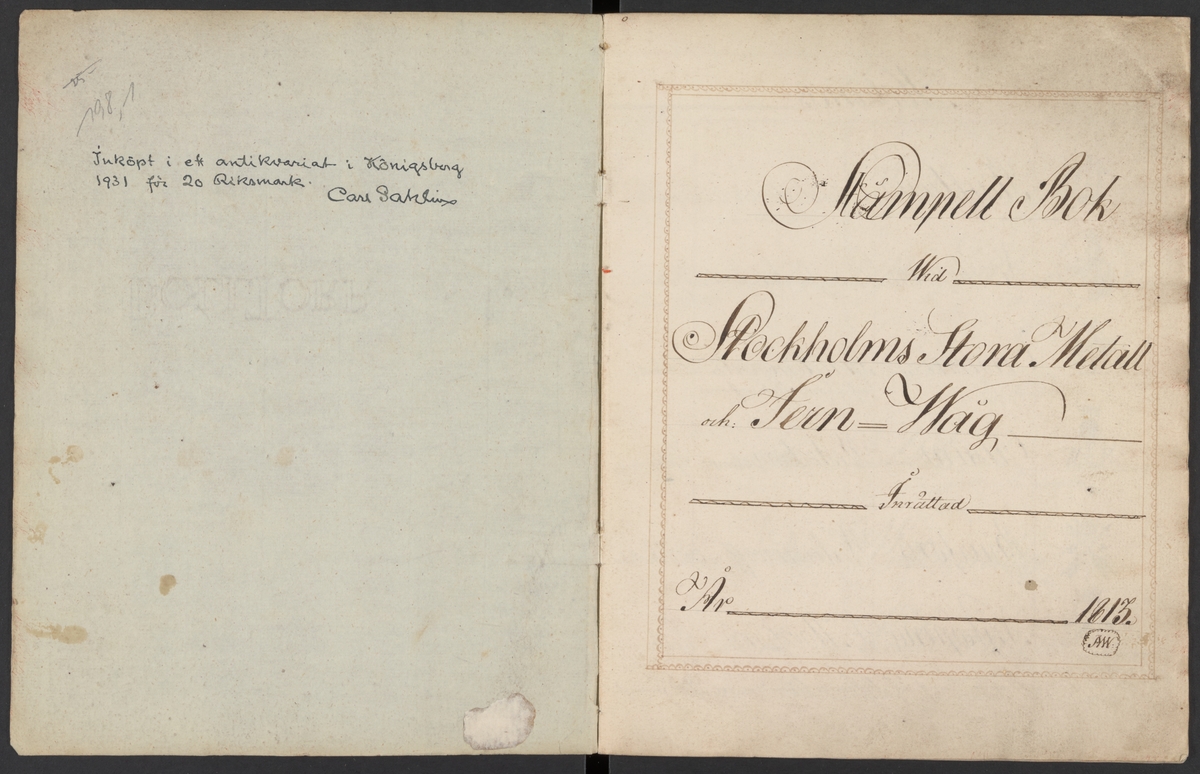 198,1
Inköpt i ett antikvariat i Königsberg
1931 för 20 Riksmark.
Carl Sahlin
Stämpell Bok
Wid
Stockholms Stora Metall
och: Jern=Wåg
Inrättad
År 1813.
AW